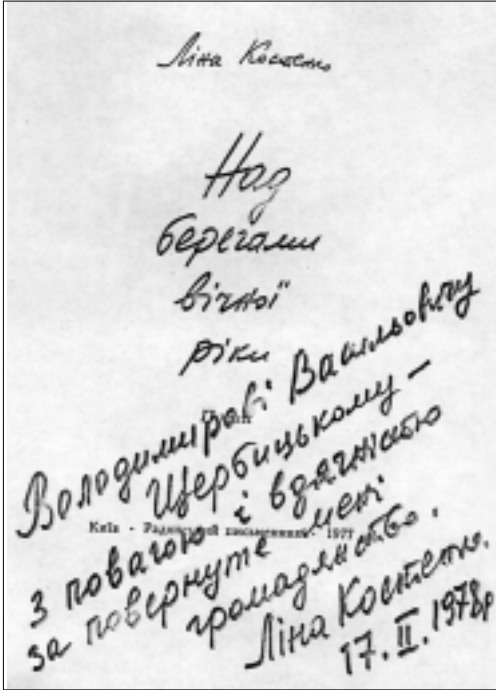 Ліна Костенко
Над
берегами
вічної
ріки
Київ · Радянський письменник · 1977
Володимирові Васильовичу
Щербицькому –
з повагою і вдячністю
за повернуте мені
громадянство.
Ліна Костенко.
17.II.1978р